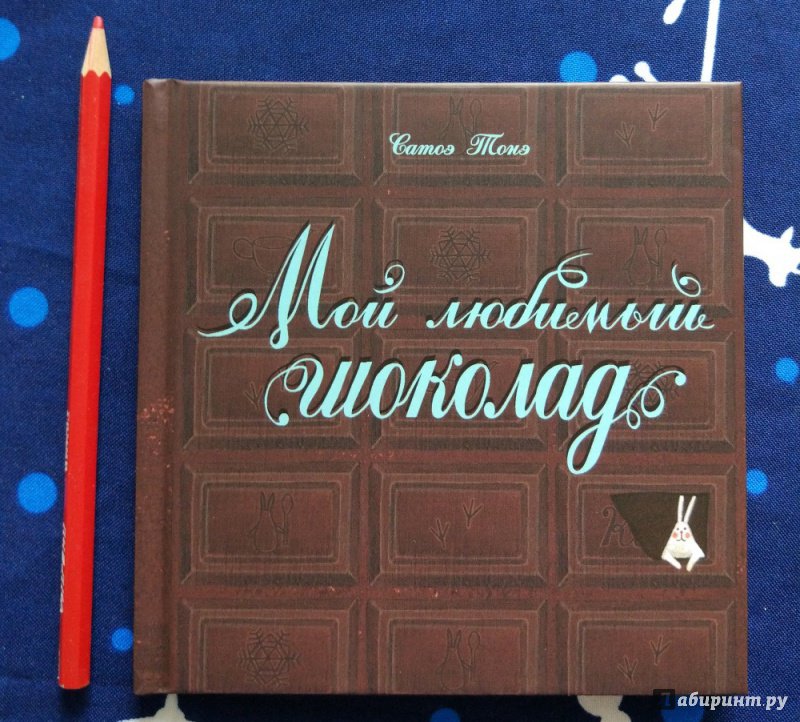 Сатоэ Тонэ
Мой любимый
шоколад
Лабиринт.ру